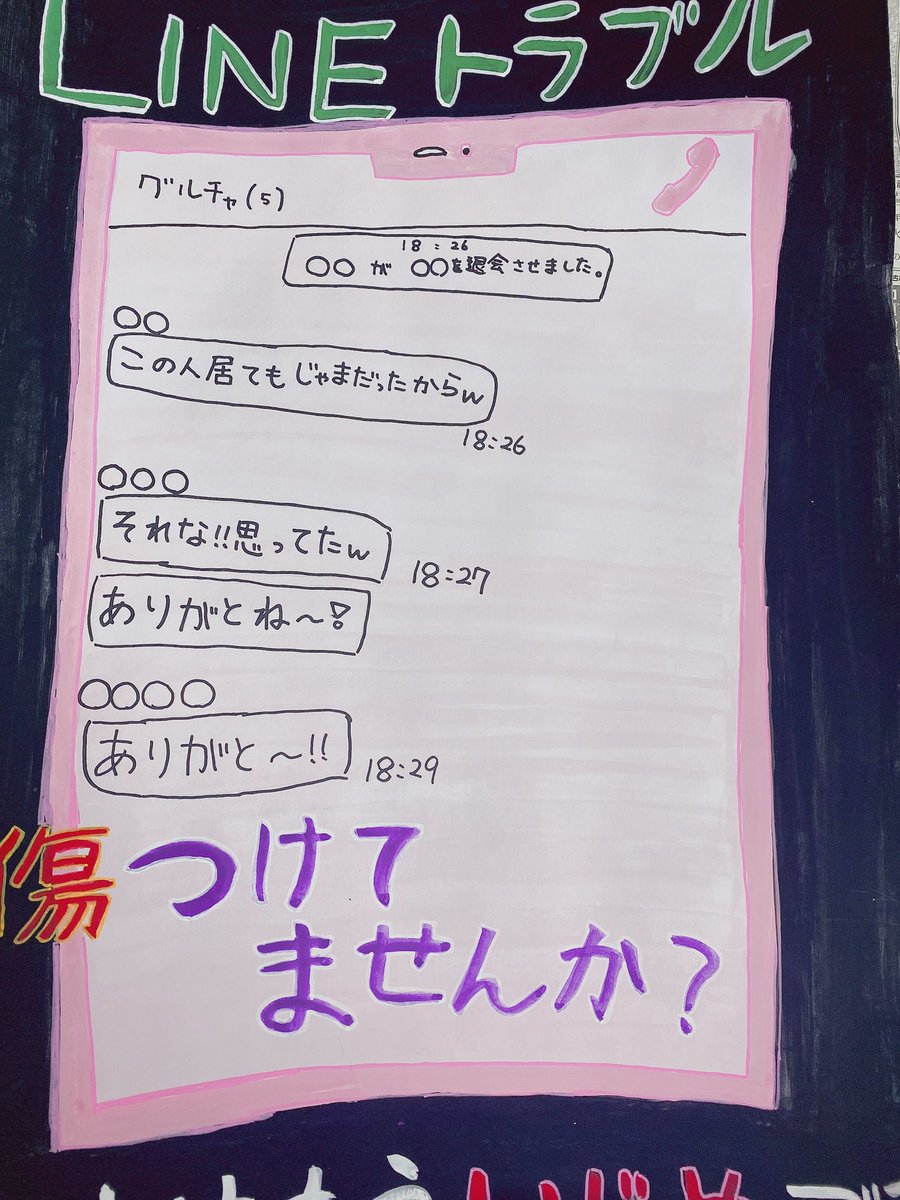 LINEトラブル
グルチャ(5)
18:26
○○が○○を退会させました。
○○
この人居てもじゃまだったからw
18:26
○○○
それな!!思ってたw
18:27
ありがとね〜!
○○○○
ありがと〜!!
18:29
傷つけて
ませんか?